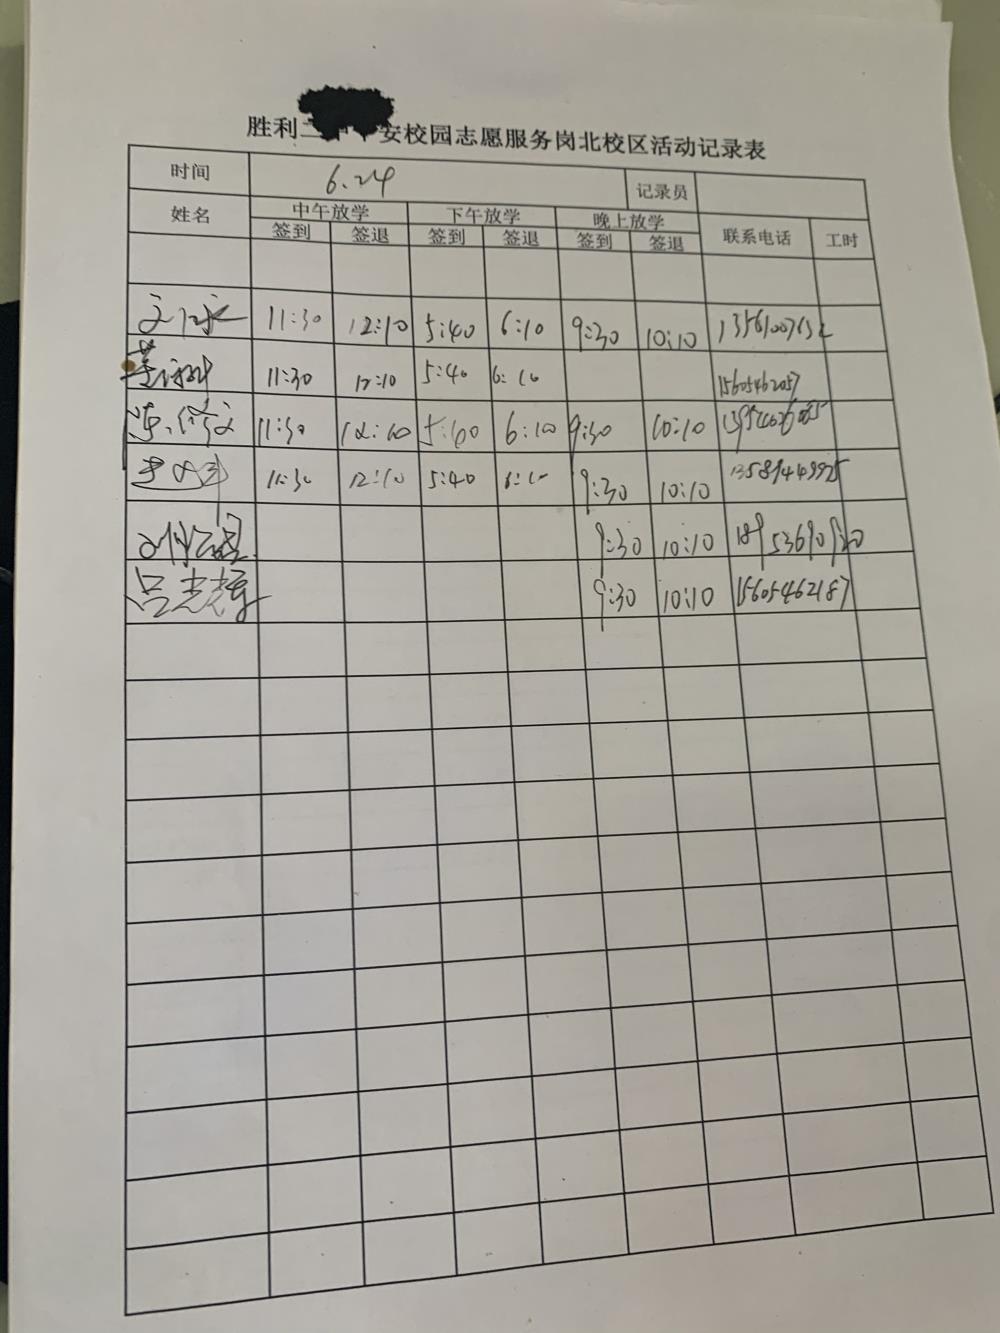 胜利二中平安校园志愿服务岗北校区活动记录表
时间 6.24 记录员
姓名 中午放学 下午放学 晚上放学 联系电话 工时
签到 签退 签到 签退 签到 签退
11:30 12:10 5:40 6:10 9:30 10:10
11:30 12:10 5:40 6:10 15605462057
11:30 12:10 5:40 6:10 9:30 10:10
11:30 12:10 5:40 6:10 9:30 10:10 13589449975
9:30 10:10 18953690920
吕志尧 9:30 10:10 15605462187